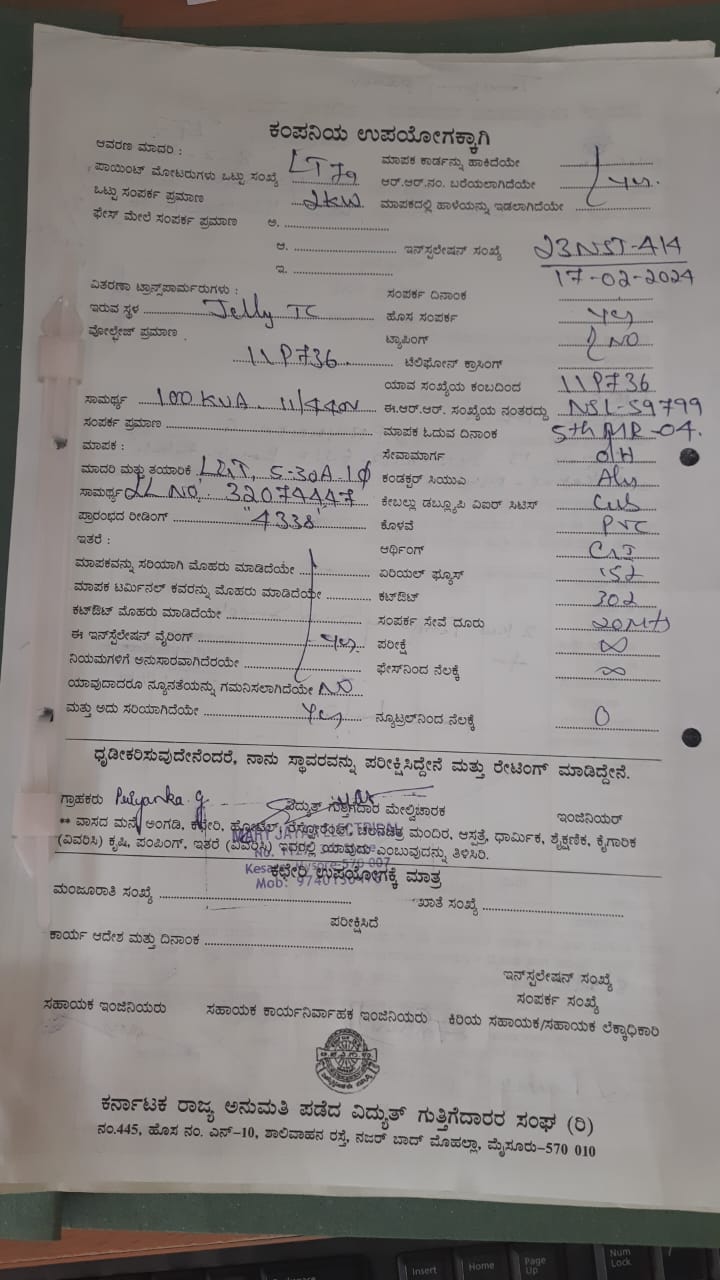 ಕಂಪನಿಯ ಉಪಯೋಗಕ್ಕಾಗಿ
ಆವರಣ ಮಾದರಿ : ಮಾಪಕ ಕಾರ್ಡನ್ನು ಹಾಕಿದೆಯೇ
ಪಾಯಿಂಟ್ ಮೋಟರುಗಳು ಒಟ್ಟು ಸಂಖ್ಯೆ LT79 ಆರ್.ಆರ್.ನಂ. ಬರೆಯಲಾಗಿದೆಯೇ yes.
ಒಟ್ಟು ಸಂಪರ್ಕ ಪ್ರಮಾಣ 2KW ಮಾಪಕದಲ್ಲಿ ಹಾಳೆಯನ್ನು ಇಡಲಾಗಿದೆಯೇ
ಫೇಸ್ ಮೇಲೆ ಸಂಪರ್ಕ ಪ್ರಮಾಣ ಅ.
ಆ. ಇನ್‌ಸ್ಟಲೇಷನ್ ಸಂಖ್ಯೆ 23NST-414
ಇ. 17-02-2024
ವಿತರಣಾ ಟ್ರಾನ್ಸ್‌ಪಾರ್ಮರುಗಳು : ಸಂಪರ್ಕ ದಿನಾಂಕ
ಇರುವ ಸ್ಥಳ Jelly TC ಹೊಸ ಸಂಪರ್ಕ yes
ವೋಲ್ಟೇಜ್ ಪ್ರಮಾಣ ಟ್ಯಾಪಿಂಗ್ NO
11P736 ಟೆಲಿಫೋನ್ ಕ್ರಾಸಿಂಗ್
ಯಾವ ಸಂಖ್ಯೆಯ ಕಂಬದಿಂದ 11P736
ಸಾಮರ್ಥ್ಯ 100 KVA. 11/440V ಈ.ಆರ್.ಆರ್. ಸಂಖ್ಯೆಯ ನಂತರದ್ದು NSL-59799
ಸಂಪರ್ಕ ಪ್ರಮಾಣ ಮಾಪಕ ಓದುವ ದಿನಾಂಕ 5th MR-04.
ಮಾಪಕ : ಸೇವಾಮಾರ್ಗ OH
ಮಾದರಿ ಮತ್ತು ತಯಾರಿಕೆ L&T, 5-30A 1φ ಕಂಡಕ್ಟರ್ ಸಿಯುಎ Alu
ಸಾಮರ್ಥ್ಯ SL NO: 32074447 ಕೇಬಲ್ಲು ಡಬ್ಲ್ಯೂಪಿ ವಿಐಆರ್ ಸಿಟಿಸ್
ಪ್ರಾರಂಭದ ರೀಡಿಂಗ್ "4338" ಕೊಳವೆ PVC
ಇತರೆ : ಆರ್ಥಿಂಗ್
ಮಾಪಕವನ್ನು ಸರಿಯಾಗಿ ಮೊಹರು ಮಾಡಿದೆಯೇ ಏರಿಯಲ್ ಫ್ಯೂಸ್
ಮಾಪಕ ಟರ್ಮಿನಲ್ ಕವರನ್ನು ಮೊಹರು ಮಾಡಿದೆಯೇ ಕಟ್‌ಔಟ್
ಕಟ್‌ಔಟ್ ಮೊಹರು ಮಾಡಿದೆಯೇ ಸಂಪರ್ಕ ಸೇವೆ ದೂರು 20Mts
ಈ ಇನ್‌ಸ್ಟಲೇಷನ್ ವೈರಿಂಗ್ Yes ಪರೀಕ್ಷೆ ∞
ನಿಯಮಗಳಿಗೆ ಅನುಸಾರವಾಗಿದೆರಯೇ ಫೇಸ್‌ನಿಂದ ನೆಲಕ್ಕೆ ∞
ಯಾವುದಾದರೂ ನ್ಯೂನತೆಯನ್ನು ಗಮನಿಸಲಾಗಿದೆಯೇ NO
ಮತ್ತು ಅದು ಸರಿಯಾಗಿದೆಯೇ Yes ನ್ಯೂಟ್ರಲ್‌ನಿಂದ ನೆಲಕ್ಕೆ 0
ಧೃಡೀಕರಿಸುವುದೇನೆಂದರೆ, ನಾನು ಸ್ಥಾವರವನ್ನು ಪರೀಕ್ಷಿಸಿದ್ದೇನೆ ಮತ್ತು ರೇಟಿಂಗ್ ಮಾಡಿದ್ದೇನೆ.
ಗ್ರಾಹಕರು Priyanka.g. ವಿದ್ಯುತ್ ಗುತ್ತಿಗೆದಾರ ಮೇಲ್ವಿಚಾರಕ ಇಂಜಿನಿಯರ್
** ವಾಸದ ಮನೆ, ಅಂಗಡಿ, ಕಛೇರಿ, ಹೋಟೆಲ್, ರೆಸ್ಟೋರೆಂಟ್, ಚಲನಚಿತ್ರ ಮಂದಿರ, ಆಸ್ಪತ್ರೆ, ಧಾರ್ಮಿಕ, ಶೈಕ್ಷಣಿಕ, ಕೈಗಾರಿಕ
(ವಿವರಿಸಿ) ಕೃಷಿ, ಪಂಪಿಂಗ್, ಇತರೆ (ವಿವರಿಸಿ) ಇದರಲ್ಲಿ ಯಾವುದು ಎಂಬುವುದನ್ನು ತಿಳಿಸಿರಿ.
ಕಛೇರಿ ಉಪಯೋಗಕ್ಕೆ ಮಾತ್ರ
ಮಂಜೂರಾತಿ ಸಂಖ್ಯೆ ಖಾತೆ ಸಂಖ್ಯೆ
ಪರೀಕ್ಷಿಸಿದೆ
ಕಾರ್ಯ ಆದೇಶ ಮತ್ತು ದಿನಾಂಕ
ಇನ್‌ಸ್ಟಲೇಷನ್ ಸಂಖ್ಯೆ
ಸಂಪರ್ಕ ಸಂಖ್ಯೆ
ಸಹಾಯಕ ಇಂಜಿನಿಯರು ಸಹಾಯಕ ಕಾರ್ಯನಿರ್ವಾಹಕ ಇಂಜಿನಿಯರು ಕಿರಿಯ ಸಹಾಯಕ/ಸಹಾಯಕ ಲೆಕ್ಕಾಧಿಕಾರಿ
ಕರ್ನಾಟಕ ರಾಜ್ಯ ಅನುಮತಿ ಪಡೆದ ವಿದ್ಯುತ್ ಗುತ್ತಿಗೆದಾರರ ಸಂಘ (ರಿ)
ನಂ.445, ಹೊಸ ನಂ. ಎನ್-10, ಶಾಲಿವಾಹನ ರಸ್ತೆ, ನಜರ್ ಬಾದ್ ಮೊಹಲ್ಲಾ, ಮೈಸೂರು-570 010
Insert Home Page Up Num Lock